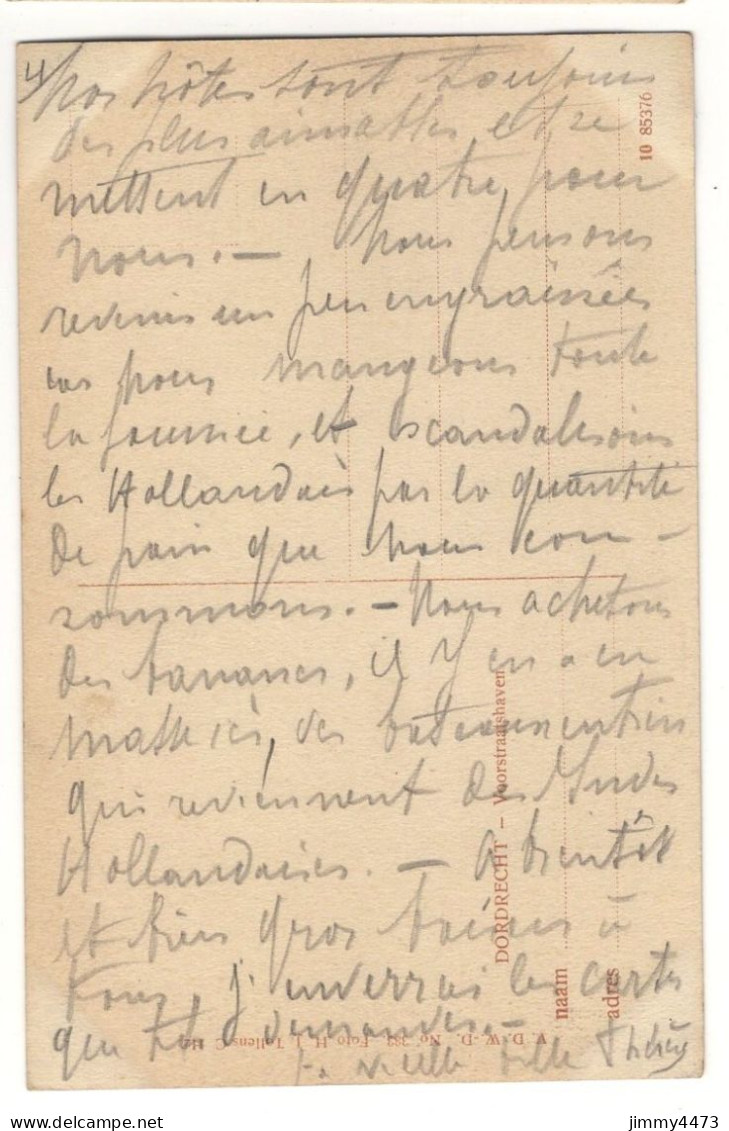 4)
Nos hôtes sont toujours
des plus aimables et se
mettent en quatre pour
nous. — Nous pensons
revenir un peu engraissées
car nous mangeons toute
la journée, et scandalisons
les Hollandais par la quantité
de pain que nous con-
sommons. — Nous achetons
des bananes, il y en a en
masse ici, des bateaux entiers
qui reviennent des Indes
Hollandaises. — A bientôt
et bien gros baisers à
tous, j'enverrai les cartes
que tu demandes. —
Ta vieille fille
10 85376
DORDRECHT — Voorstraatshaven
naam
adres
V. D. W.-D. No 382 Foto H. J. Tollens C.Hz.
jimmy4473